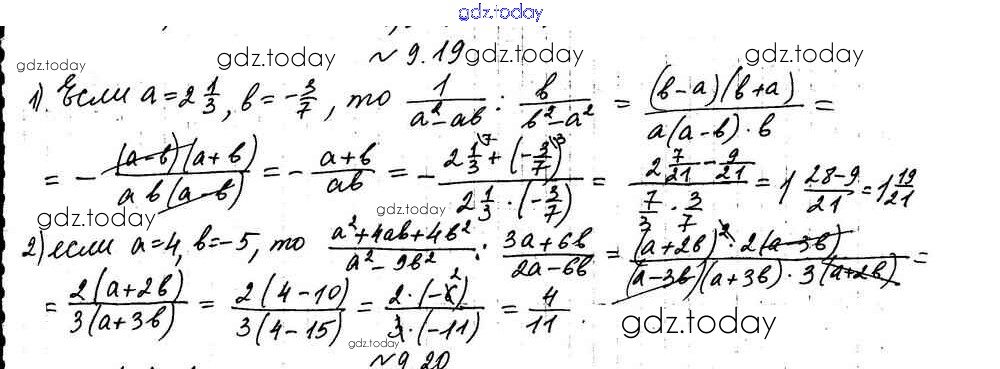 gdz.today
№ 9.19
gdz.today gdz.today gdz.today gdz.today
1). Если a = 2 1/3, b = -3/7, то 1/(a² - ab) : b/(b² - a²) = (b-a)(b+a)/(a(a-b)·b) =
= - (a-b)(a+b)/(ab(a-b)) = - (a+b)/(ab) = - (2 1/3 \7 + (-3/7) \3)/(2 1/3 · (-3/7)) = (2 7/21 - 9/21)/(7/3 · 3/7) = 1 (28-9)/21 = 1 19/21
gdz.today gdz.today gdz.today
2) если a=4, b=-5, то (a²+4ab+4b²)/(a²-9b²) : (3a+6b)/(2a-6b) = (a+2b)²·2(a-3b)/((a-3b)(a+3b)·3(a+2b)) =
= 2(a+2b)/(3(a+3b)) = 2(4-10)/(3(4-15)) = 2·(-6) 2/(3·(-11)) = 4/11.
gdz.today gdz.today
№ 9.20